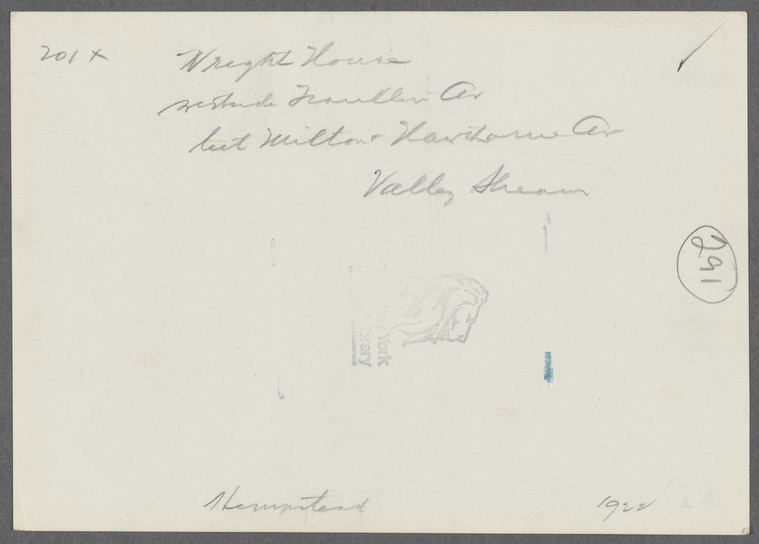 201 X
Wright House
westside Franklin Av
bet Milton & Hawthorne Av
Valley Stream
291
New York
Library
Hempstead 1922